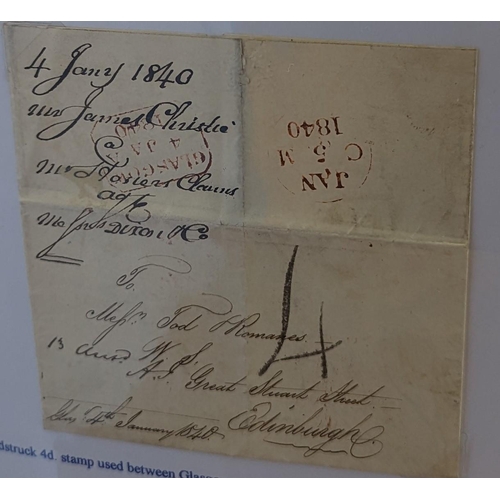 4 Jany 1840
Mr James Christie
Mr Claims
agt
Messrs Dixon & Co
GLASGOW
4 JA
1840
JAN
C 5 M
1840
4
To
Messrs Tod & Romanes
W. S.
Great Stuart Street
Edinburgh
4th January 1840
dstruck 4d. stamp used between Glasg